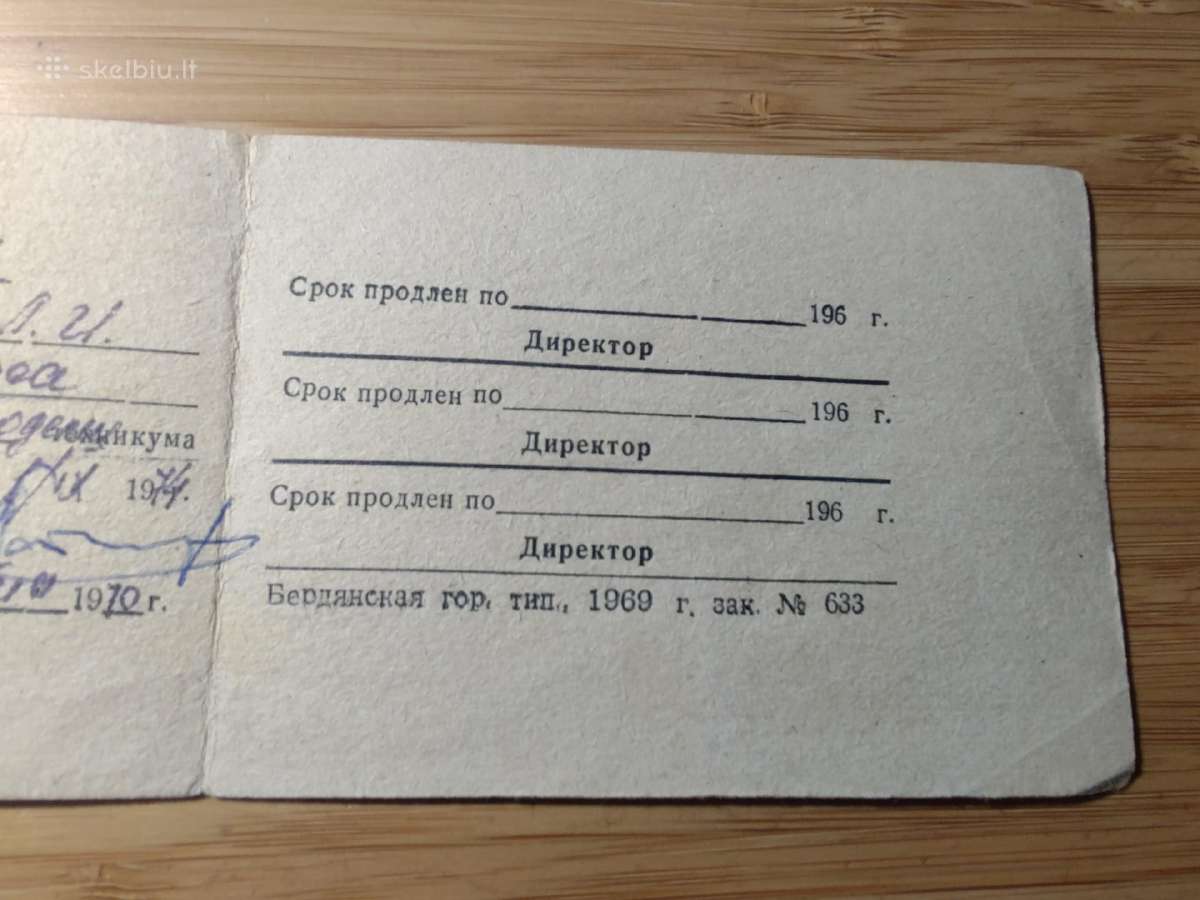 skelbiu.lt
Л. И.
техникума
IX 1974.
1970 г.
Срок продлен по 196 г.
Директор
Срок продлен по 196 г.
Директор
Срок продлен по 196 г.
Директор
Бердянская гор. тип., 1969 г. зак. № 633